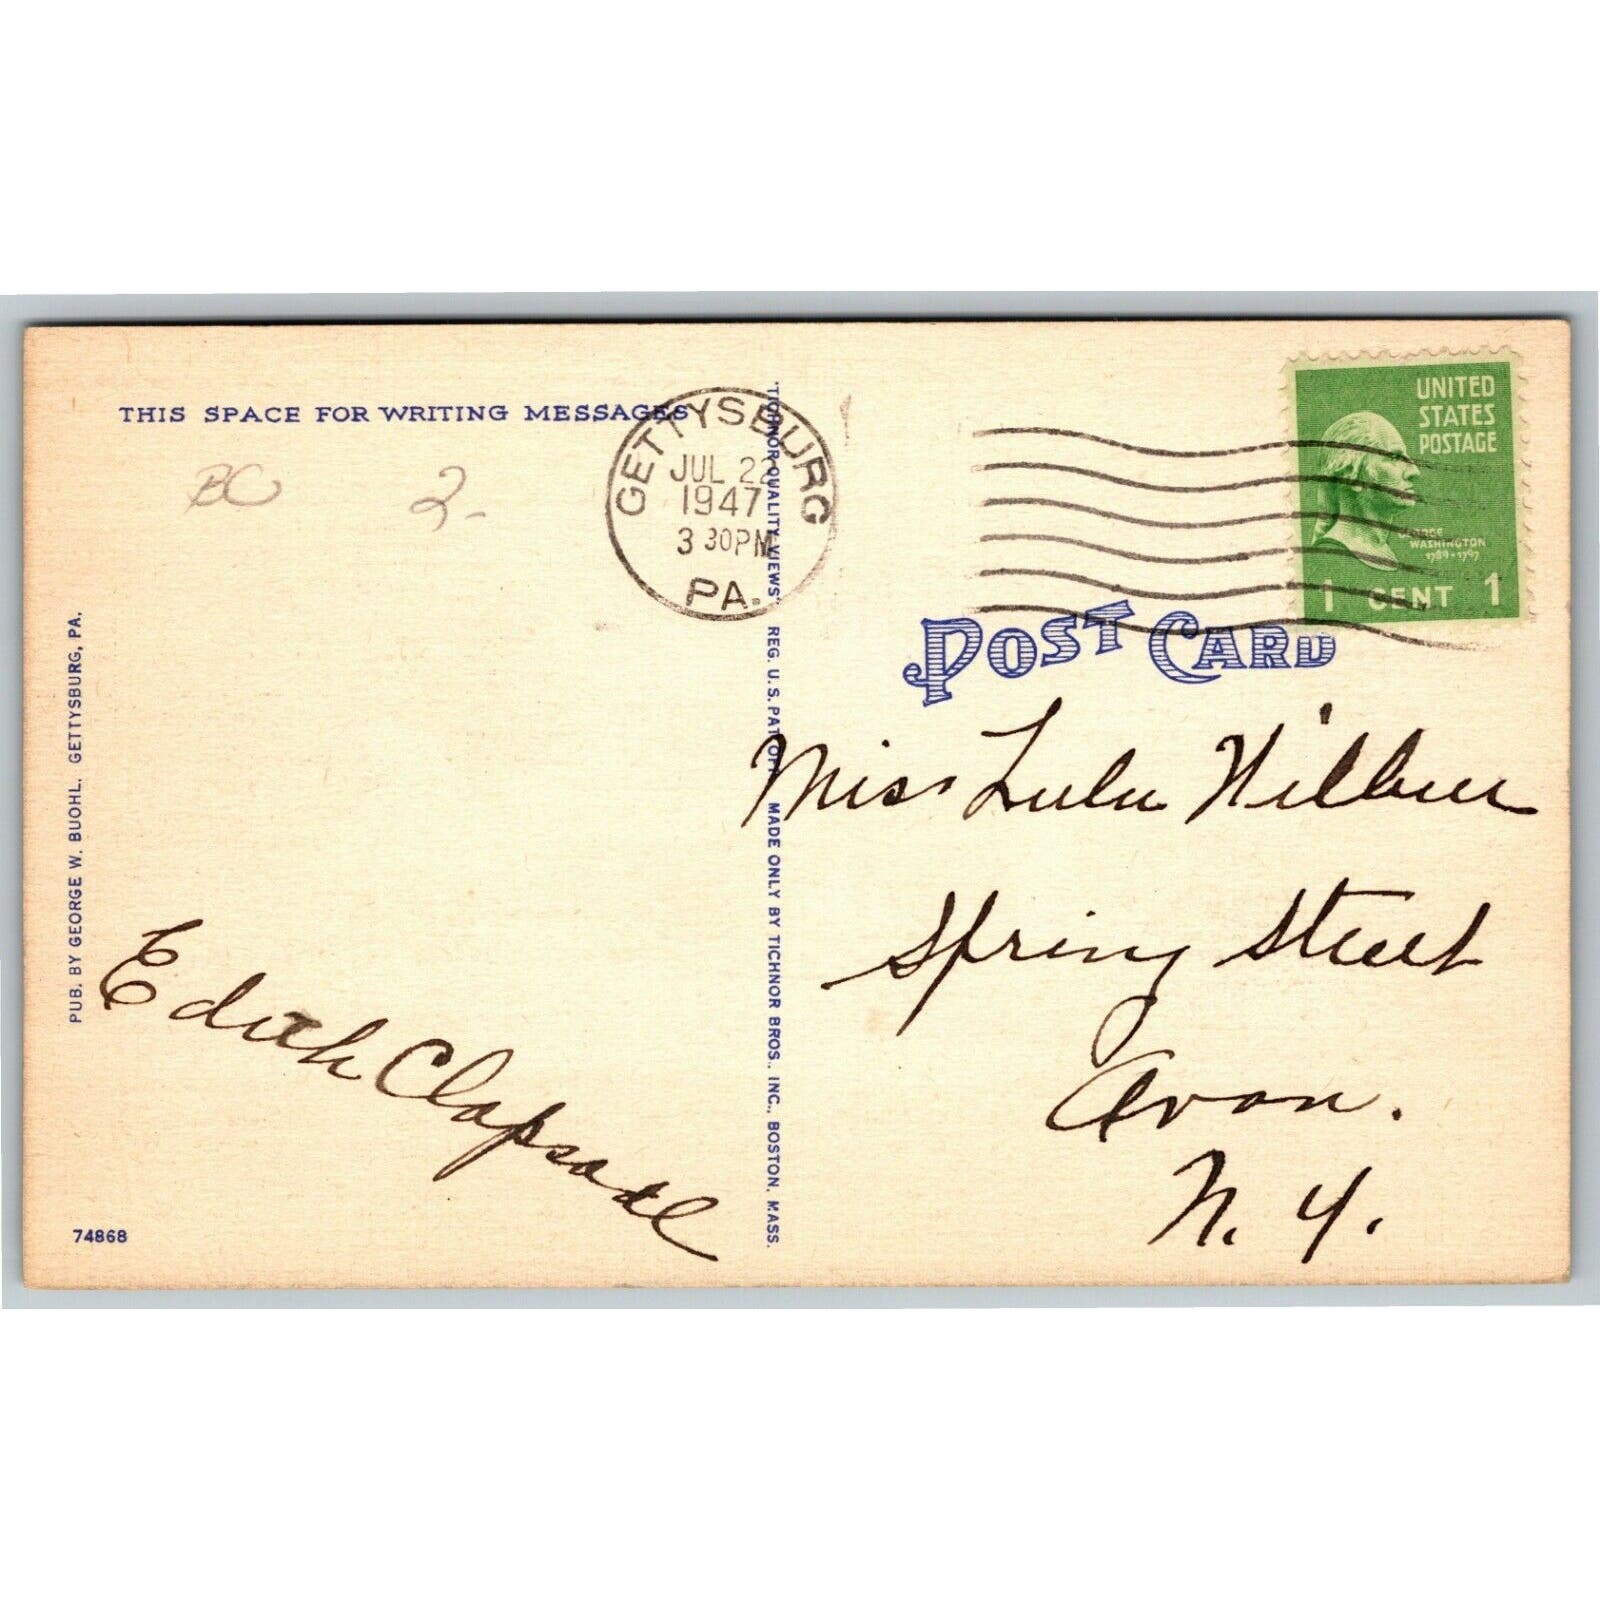 THIS SPACE FOR WRITING MESSAGES
BC 2-
GETTYSBURG
JUL 22
1947
3 30PM
PA.
UNITED
STATES
POSTAGE
GEORGE
WASHINGTON
1789-1797
1 CENT 1
POST CARD
Miss Lulu Wilbur
Spring Street
Avon.
N. Y.
Edith Clapsadl
PUB. BY GEORGE W. BUOHL, GETTYSBURG, PA.
74868
"TICHNOR QUALITY VIEWS" REG. U.S. PAT. OFF. MADE ONLY BY TICHNOR BROS., INC., BOSTON, MASS.